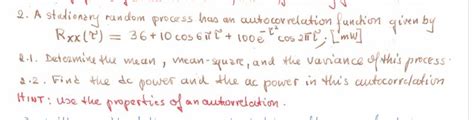 2. A stationary random process has an autocorrelation function given by
Rxx(τ) = 36 + 10 cos 6πτ + 100 e^-τ² cos 2πτ, [mW]
2.1. Determine the mean, mean-square, and the variance of this process.
2.2. Find the dc power and the ac power in this autocorrelation
HINT: use the properties of an autorrelation.